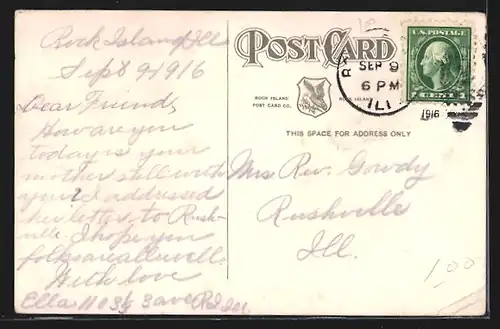 Rock Island Ill
Sept 9 1916
Dear Friend,
How are you
today is your
mother still with
you? I addressed
her letter to Rush-
ville. I hope you
folks are all well.
With love
Ella 1103½ 3 ave R.I. Ill
POST CARD
ROCK ISLAND
POST CARD CO.
ROCK ISLAND
THIS SPACE FOR ADDRESS ONLY
Mrs Rev. Gowdy
Rushville
Ill.
U.S. POSTAGE
1 CENT 1
SEP 9
6 PM
ILL
1916
100
1,00